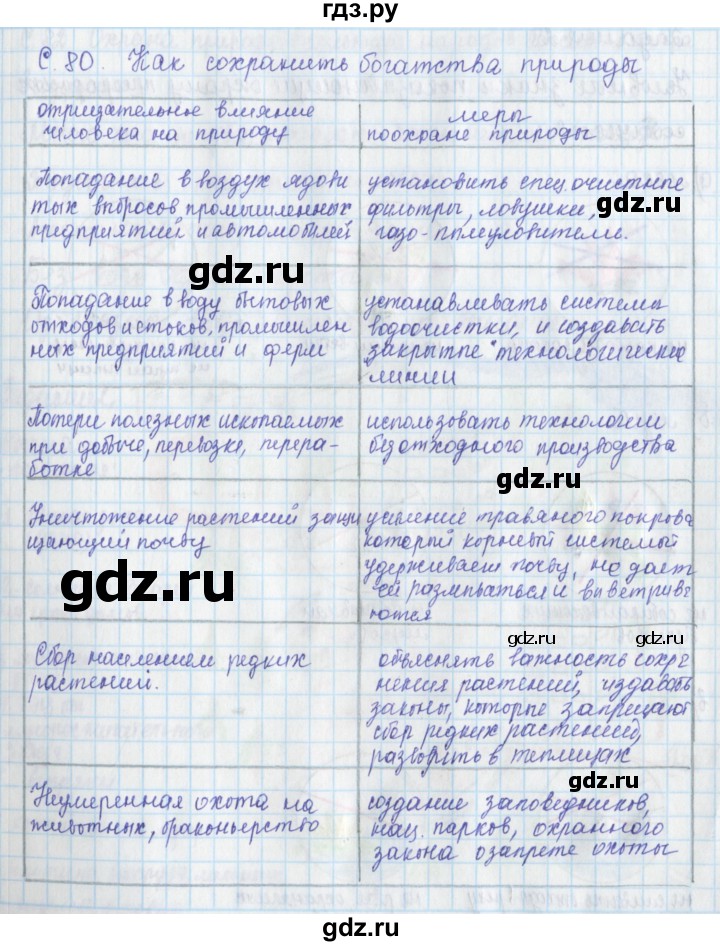 гдз.ру
С. 80. Как сохранить богатства природы
отрицательное влияние
человека на природу
меры
по охране природы
Попадание в воздух ядови
тых выбросов промышленных
предприятий и автомобилей
установить спец. очистные
фильтры, ловушки,
газо-пылеуловители.
gdz.ru
gdz.ru
Попадание в воду бытовых
отходов и стоков, промышлен
ных предприятий и ферм
устанавливать системы
водоочистки, и создавать
закрытые технологические
линии
Потери полезных ископаемых
при добыче, перевозке, перера-
ботке
использовать технологии
безотходного производства
gdz.ru
Уничтожение растений защи
щающий почву
усиление травяного покрова
который корневый системый
удерживает почву, не дает
ей размываться и выветрив
ются
gdz.ru
gdz.ru
gdz.ru
Сбор населением редких
растений.
объяснять важность сохра
нения растений, издавать
законы, которые запрещают
сбор редких растений,
разводить в теплицах
gdz.ru
Неумеренная охота на
животных, браконьерство
создание заповедников,
нац. парков, охранного
закона о запрете охоты
gdz.ru
gdz.ru